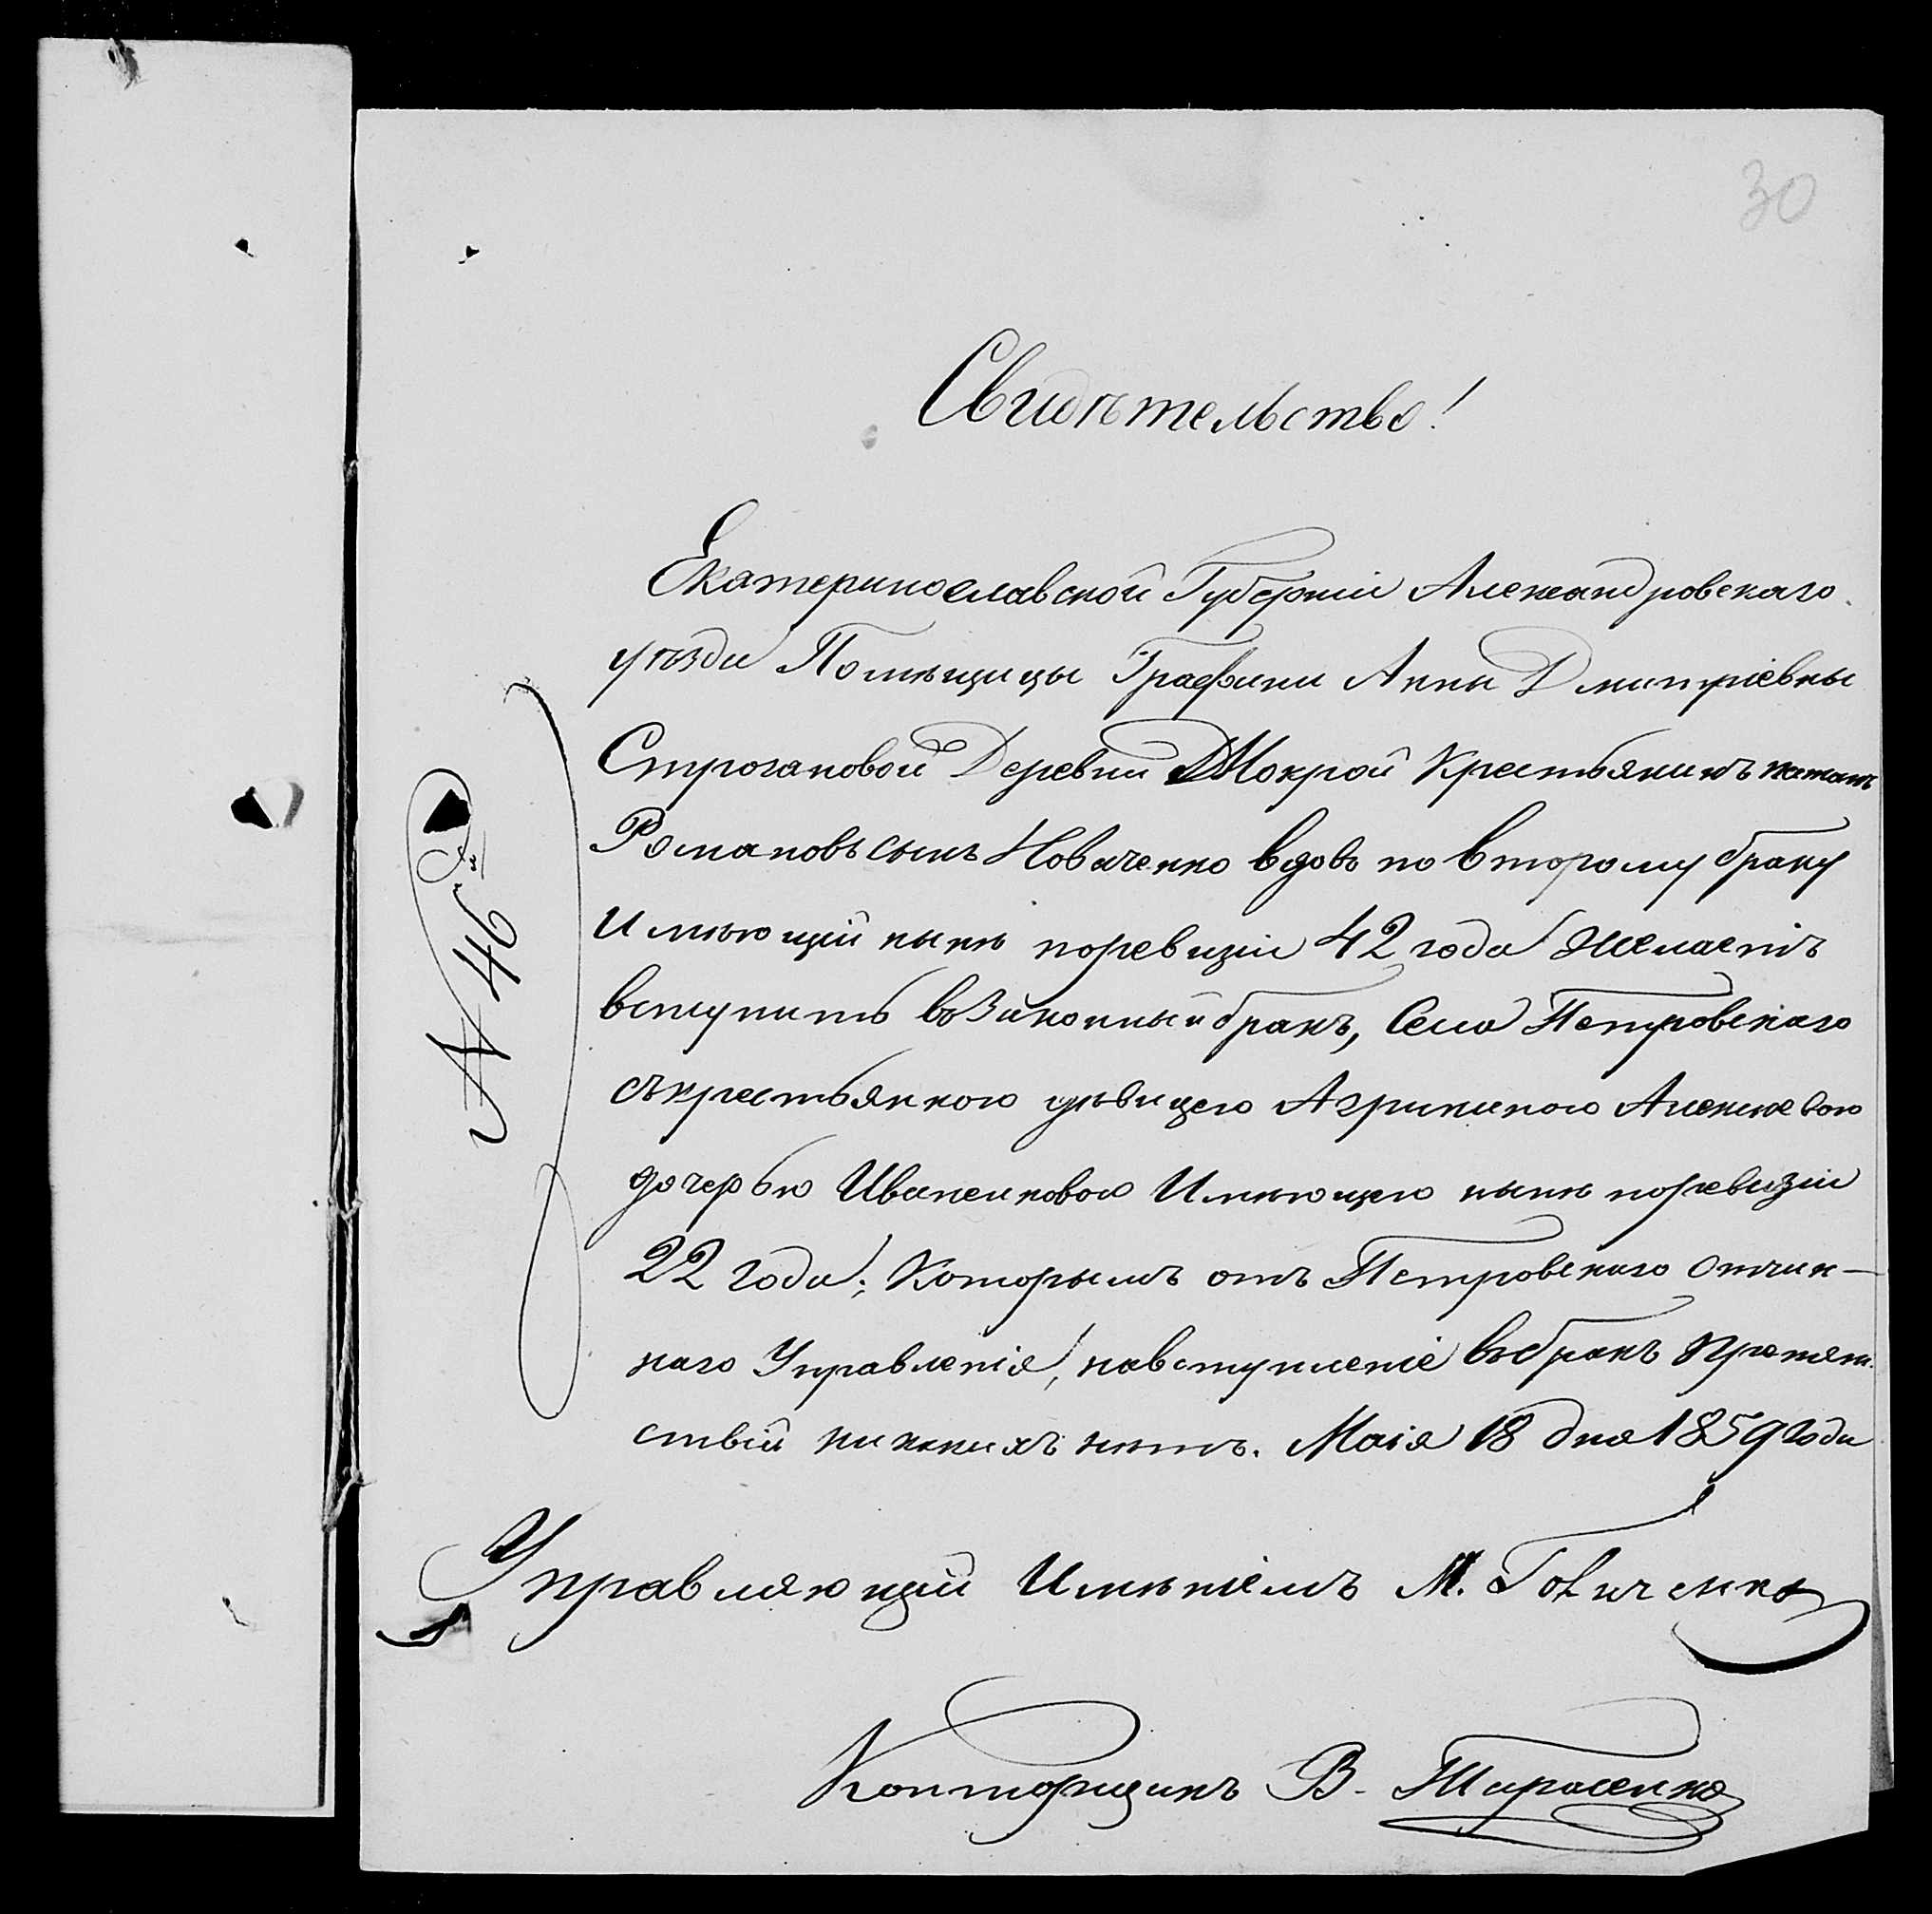 30
Свидѣтельство!
Екатеринославской Губерніи Александровскаго
уѣзда Помѣщицы Графини Анны Дмитріевны
Строгановой Деревни Мокрой Крестьянинъ
Романовъ сынъ Новаченко вдовъ по второму браку
Имѣющій нынѣ поревизіи 42 года Желаетъ
вступить возаконный бракъ, Села Петровскаго
съкрестьянкою дѣвицею Агрипиною Алексѣевою
дочерью Иваненковою Имѣющею нынѣ поревизіи
22 года; Которымъ отъ Петровскаго Отчин-
наго Управленія, навступленіе вобракъ Препят
ствій никакихъ нѣтъ. Маія 18 дня 1859 года
№ 46й
Управляющій Имѣніемъ М.
Конторщикъ В. Тарасенко